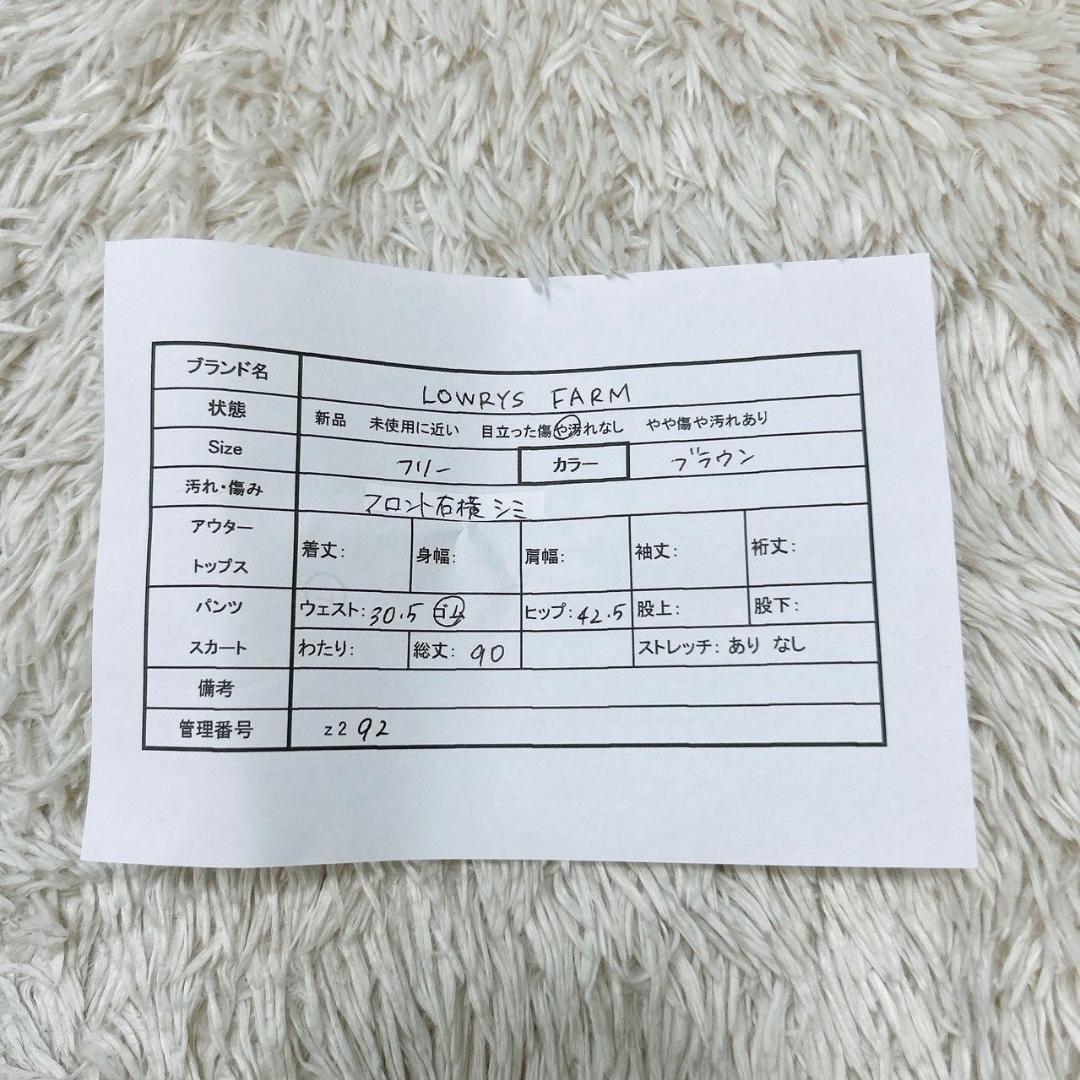 ブランド名 LOWRYS FARM
状態 新品 未使用に近い 目立った傷や汚れなし やや傷や汚れあり
Size フリー カラー ブラウン
汚れ・傷み フロント右横 シミ
アウター
トップス 着丈: 身幅: 肩幅: 袖丈: 裄丈:
パンツ ウェスト:30.5 ゴム ヒップ:42.5 股上: 股下:
スカート わたり: 総丈: 90 ストレッチ: あり なし
備考
管理番号 z292